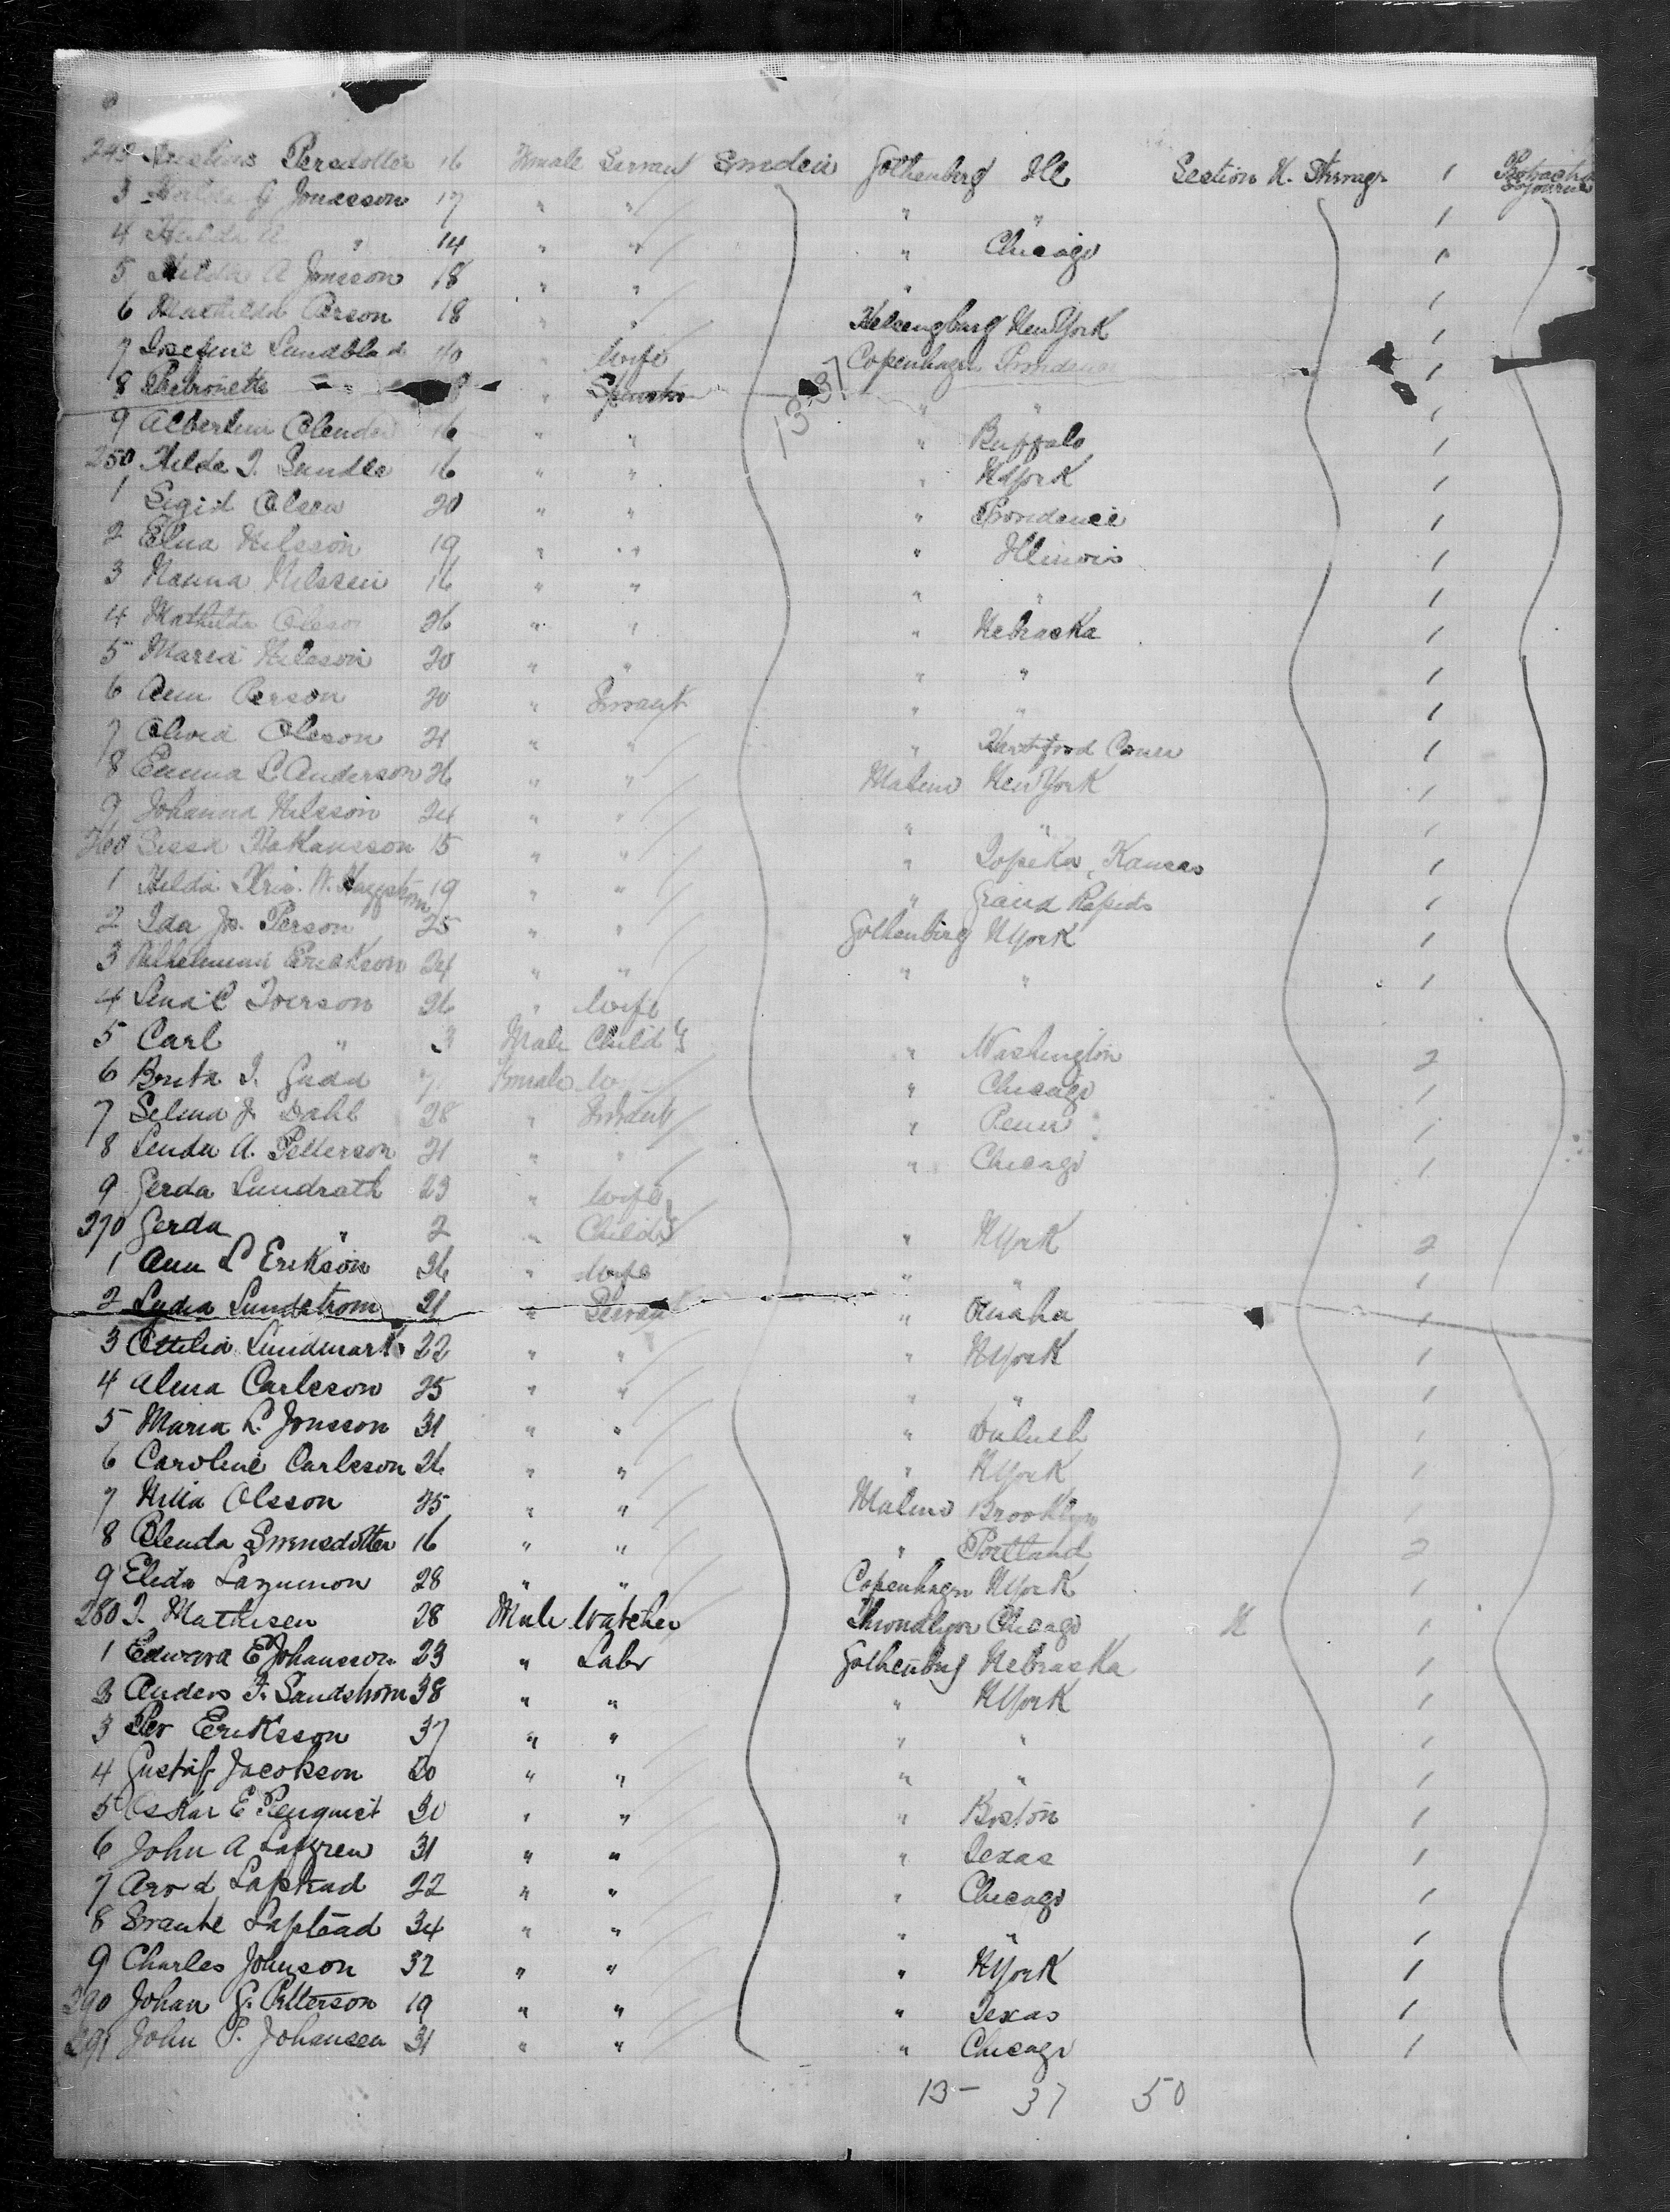 242 Persdotter 16 Female Servant Sweden Gothenburg Ill Section H. Steerage 1 Protracted Sojourn
3 Hulda G Jonasson 17 " " " " 1
4 Hulda A " 14 " " " Chicago 1
5 Hilda A Jonsson 18 " " " 1
6 Mathilda Person 18 " " Helsengburg New York 1
7 Josefine Sundblad 40 " Wife Copenhagen Providence 1
8 Petronella " 8 " Spinster " " 1
9 Albertina Olender 16 " " " Buffalo 1
250 Hilda I. Sundle 16 " " " NYork 1
1 Sigid Olsen 20 " " " Providence 1
2 Elna Nilsson 19 " " " Illinois 1
3 Nanna Nilssen 16 " " " " 1
4 Mathilda Olsson 26 " " " Nebraska 1
5 Maria Nilsson 20 " " " " 1
6 Ann Person 20 " Servant " " 1
7 Olivia Olsson 21 " " " Hartford Conn 1
8 Emma L Anderson 26 " " Malmo New York 1
9 Johanna Nilsson 24 " " " " 1
260 Sissa Hakansson 15 " " " Topeka, Kansas 1
1 Hilda Kris. W. Haggstrom 19 " " " Grand Rapids 1
2 Ida Jos. Person 25 " " Gothenburg NYork 1
3 Wilhelmina Erickson 24 " " " " 1
4 Lena C Iverson 26 " Wife
5 Carl " 3 Male Child " Washington 2
6 Brita I. Gadd Female W " Chicago 1
7 Selma J. Dahl 28 " Servant " Penn 1
8 Lenda A. Petterson 21 " " " Chicago 1
9 Gerda Lundrath 23 " Wife
270 Gerda " 2 " Child " NYork 2
1 Ann L Erikson 26 " Wife " " 1
2 Lydia Lundstrom 21 " Servant " Omaha 1
3 Ottilia Lindmark 22 " " " NYork 1
4 Alma Carlsson 25 " " " " 1
5 Maria L. Jonsson 31 " " " Duluth 1
6 Caroline Carlsson 26 " " " NYork 1
7 Nilla Olsson 25 " " Malmo Brooklyn 1
8 Blenda Svensdotter 16 " " " Portland 2
9 Elida Lazumon 28 " " Copenhagen NYork 1
280 I. Mathisen 28 Male Watcher Throndhjem Chicago H 1
1 Edward E Johansson 23 " Labr Gothenburg Nebraska 1
2 Anders F. Sandstrom 38 " " " NYork 1
3 Per Eriksson 37 " " " " 1
4 Gustaf Jacobson 20 " " " " 1
5 Oskar E Renquist 30 " " " Boston 1
6 John A Lafgren 31 " " " Texas 1
7 Arvd Lafstad 22 " " " Chicago 1
8 Svante Lafstad 34 " " " " 1
9 Charles Johnson 32 " " " NYork 1
290 Johan G. Petterson 19 " " " Texas 1
291 John P. Johansen 31 " " " Chicago 1
13 - 37 50